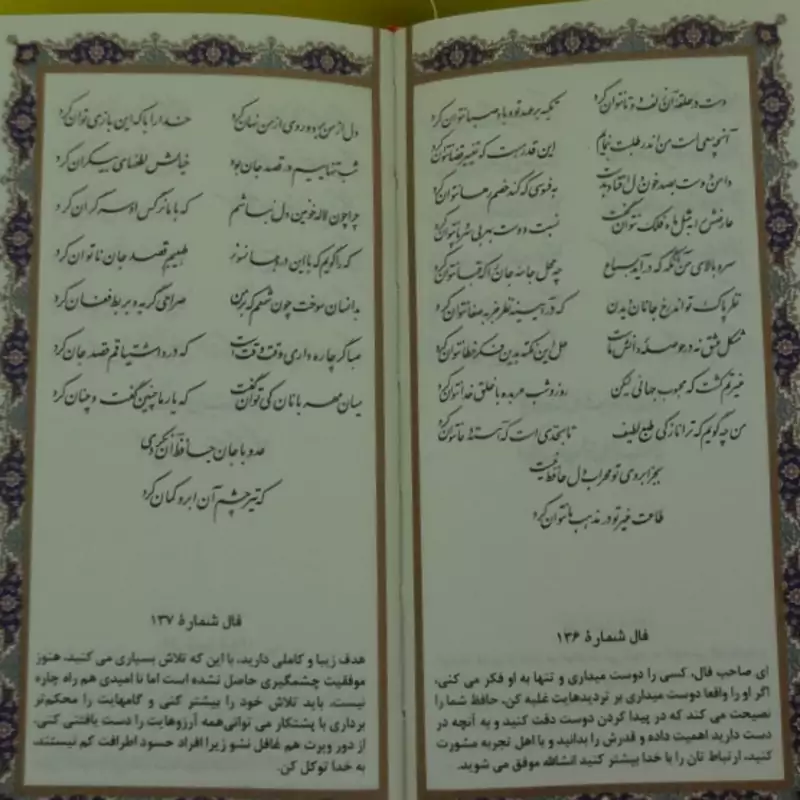 دست در حلقه آن زلف دوتا نتوان کرد تکیه بر عهد تو و باد صبا نتوان کرد
آنچه سعی است من اندر طلبت بنمایم این قدر هست که تغییر قضا نتوان کرد
دامن دوست بصد خون دل افتاد بدست به فسوسی که کند خصم رها نتوان کرد
عارضش را بمثل ماه فلک نتوان گفت نسبت دوست بهر بی سر و پا نتوان کرد
سرو بالای من آنگه که درآید بسماع چه محل جامه جان را که قبا نتوان کرد
نظر پاک تواند رخ جانان دیدن که در آیینه نظر جز بصفا نتوان کرد
مشکل عشق نه در حوصله دانش ماست حل این نکته بدین فکر خطا نتوان کرد
غیرتم کشت که محبوب جهانی لیکن روز و شب عربده با خلق خدا نتوان کرد
من چه گویم که ترا نازکی طبع لطیف تا بحدی است که آهسته دعا نتوان کرد
بجز ابروی تو محراب دل حافظ نیست
طاعت غیر تو در مذهب ما نتوان کرد
فال شمارهٔ ۱۳۶
ای صاحب فال، کسی را دوست میداری و تنها به او فکر می کنی،
اگر او را واقعا دوست میداری بر تردیدهایت غلبه کن، حافظ شما را
نصیحت می کند که در پیدا کردن دوست دقت کنید و به آنچه در
دست دارید اهمیت داده و قدرش را بدانید و با اهل تجربه مشورت
کنید، ارتباط تان را با خدا بیشتر کنید انشاالله موفق می شوید.
دل از من برد و روی از من نهان کرد خدا را با که این بازی توان کرد
شب تنهاییم در قصد جان بود خیالش لطفهای بیکران کرد
چرا چون لاله خونین دل نباشم که با ما نرگس او سر گران کرد
که را گویم که با این درد جانسوز طبیبم قصد جان ناتوان کرد
بدانسان سوخت چون شمعم که بر من صراحی گریه و بربط فغان کرد
صبا گر چاره داری وقت وقتست که درد اشتیاقم قصد جان کرد
میان مهربانان کی توان گفت که یار ما چنین گفت و چنان کرد
عدو با جان حافظ آن نکردی
که تیر چشم آن ابرو کمان کرد
فال شمارهٔ ۱۳۷
هدف زیبا و کاملی دارید، با این که تلاش بسیاری می کنید، هنوز
موفقیت چشمگیری حاصل نشده است اما نا امیدی هم راه چاره
نیست، باید تلاش خود را بیشتر کنی و گامهایت را محکم‌تر
برداری با پشتکار می توانی همه آرزوهایت را دست یافتنی کنی،
از دور وبرت هم غافل نشو زیرا افراد حسود اطرافت کم نیستند،
به خدا توکل کن.